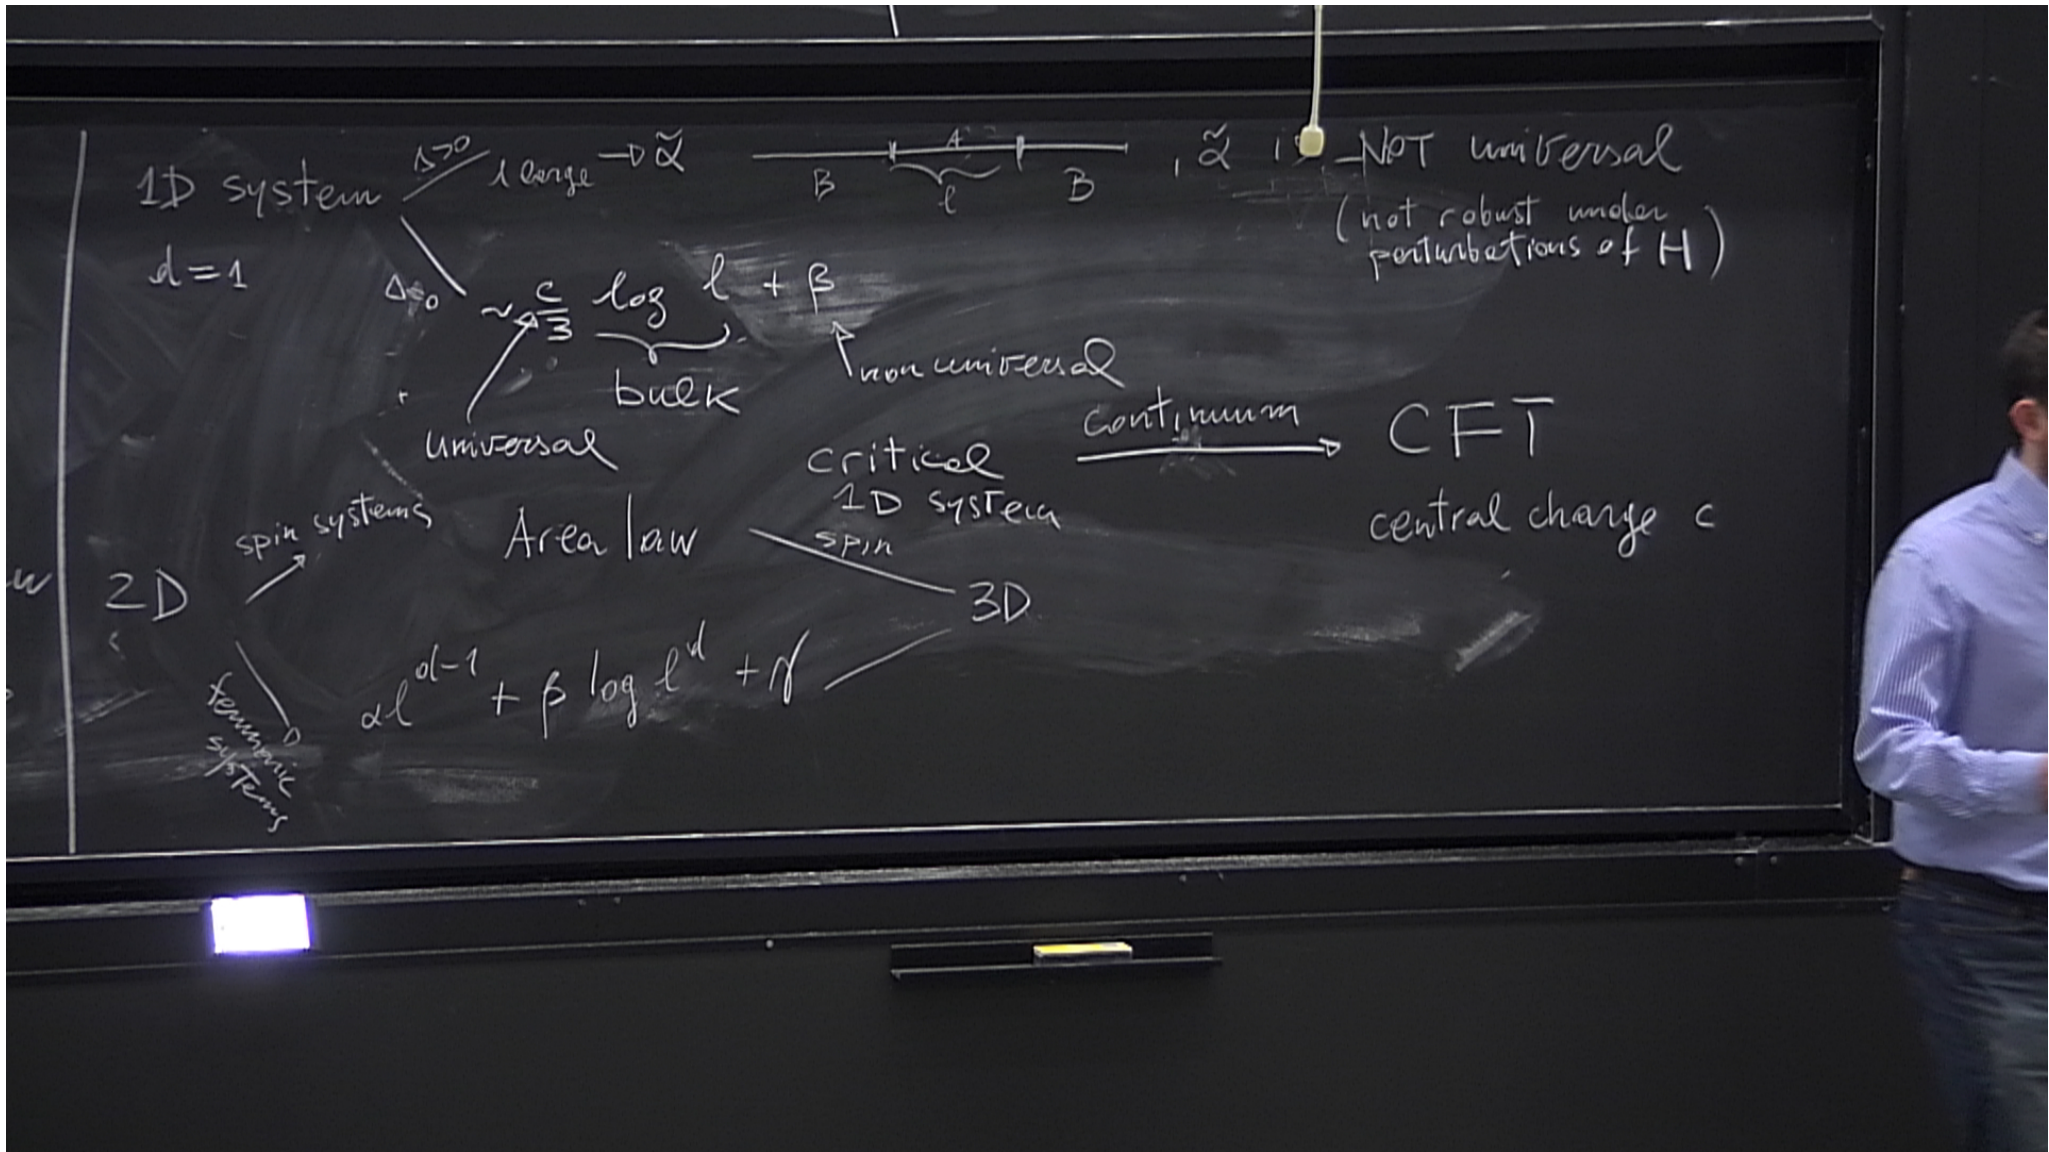 1D system Δ>0 l large → α̃ A B l B , α̃ is NOT universal
(not robust under
perturbations of H)
d=1
Δ=0 ~ c/3 log l + β
bulk
non universal
universal
critical
1D system
continuum
CFT
central charge c
spin systems
Area law
spin
2D
3D
αl^{d-1} + β log l^d + γ
fermionic
systems
w